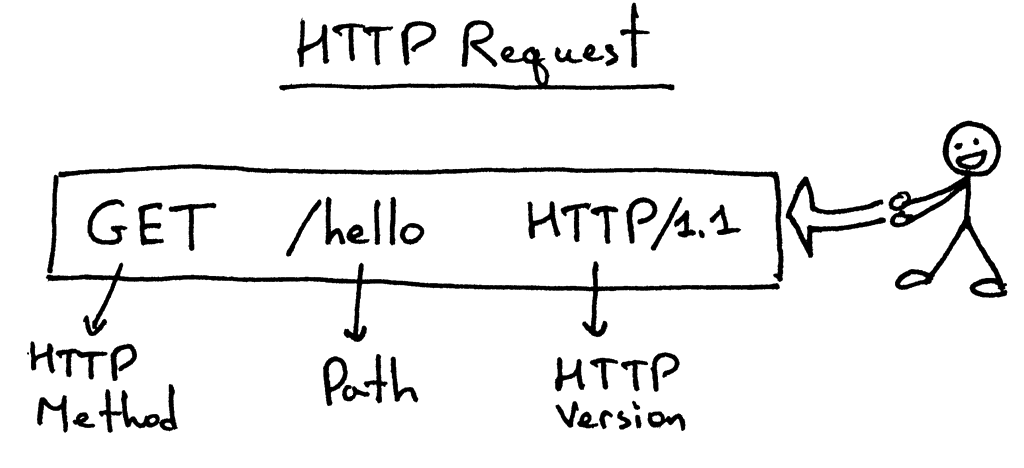 HTTP Request
GET /hello HTTP/1.1
HTTP Method
Path
HTTP Version